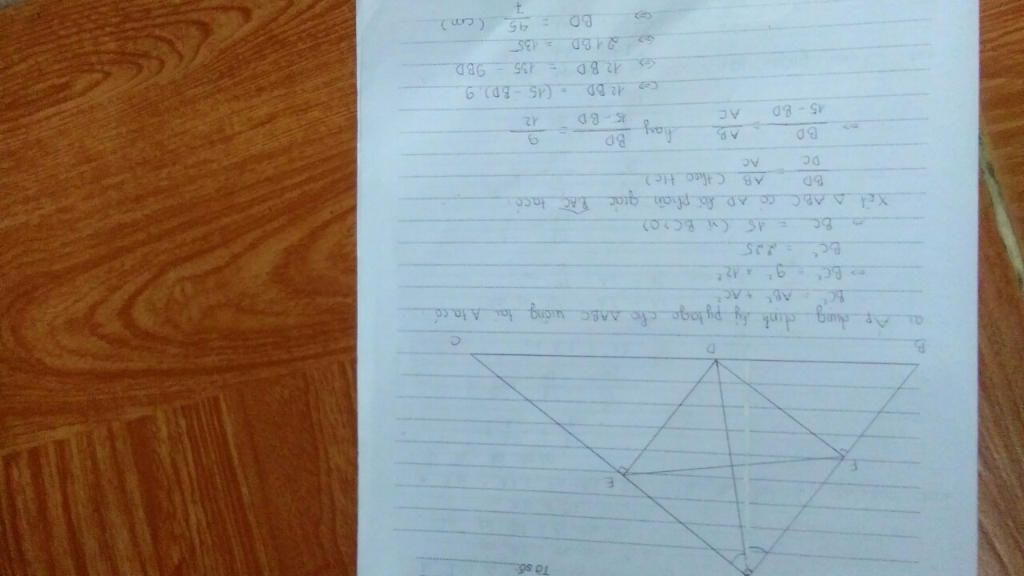 E
F
B
D
C
a. Áp dụng định lý pytago cho ΔABC vuông tại A ta có
BC² = AB² + AC²
⇔ BC² = 9² + 12²
BC² = 225
⇒ BC = 15 (vì BC>0)
Xét Δ ABC có AD là phân giác BAC ta có
BD/DC = AB/AC (theo t/c)
⇒ BD/15-BD = AB/AC hay BD/15-BD = 9/12
⇔ 12BD = (15-BD).9
⇔ 12BD = 135 - 9BD
⇔ 21BD = 135
⇔ BD = 45/7 (cm)